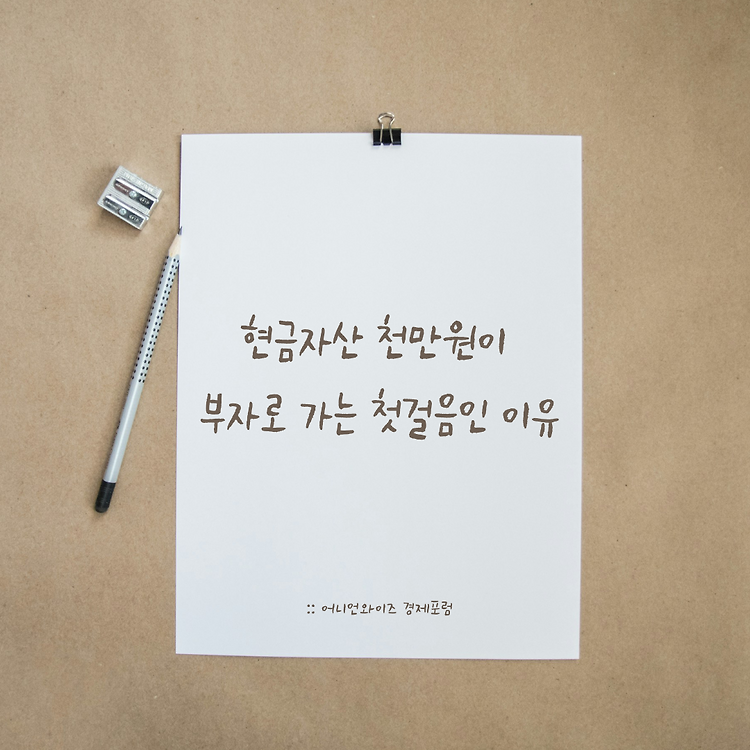 현금자산 천만원이
부자로 가는 첫걸음인 이유
:: 어니언와이즈 경제포럼